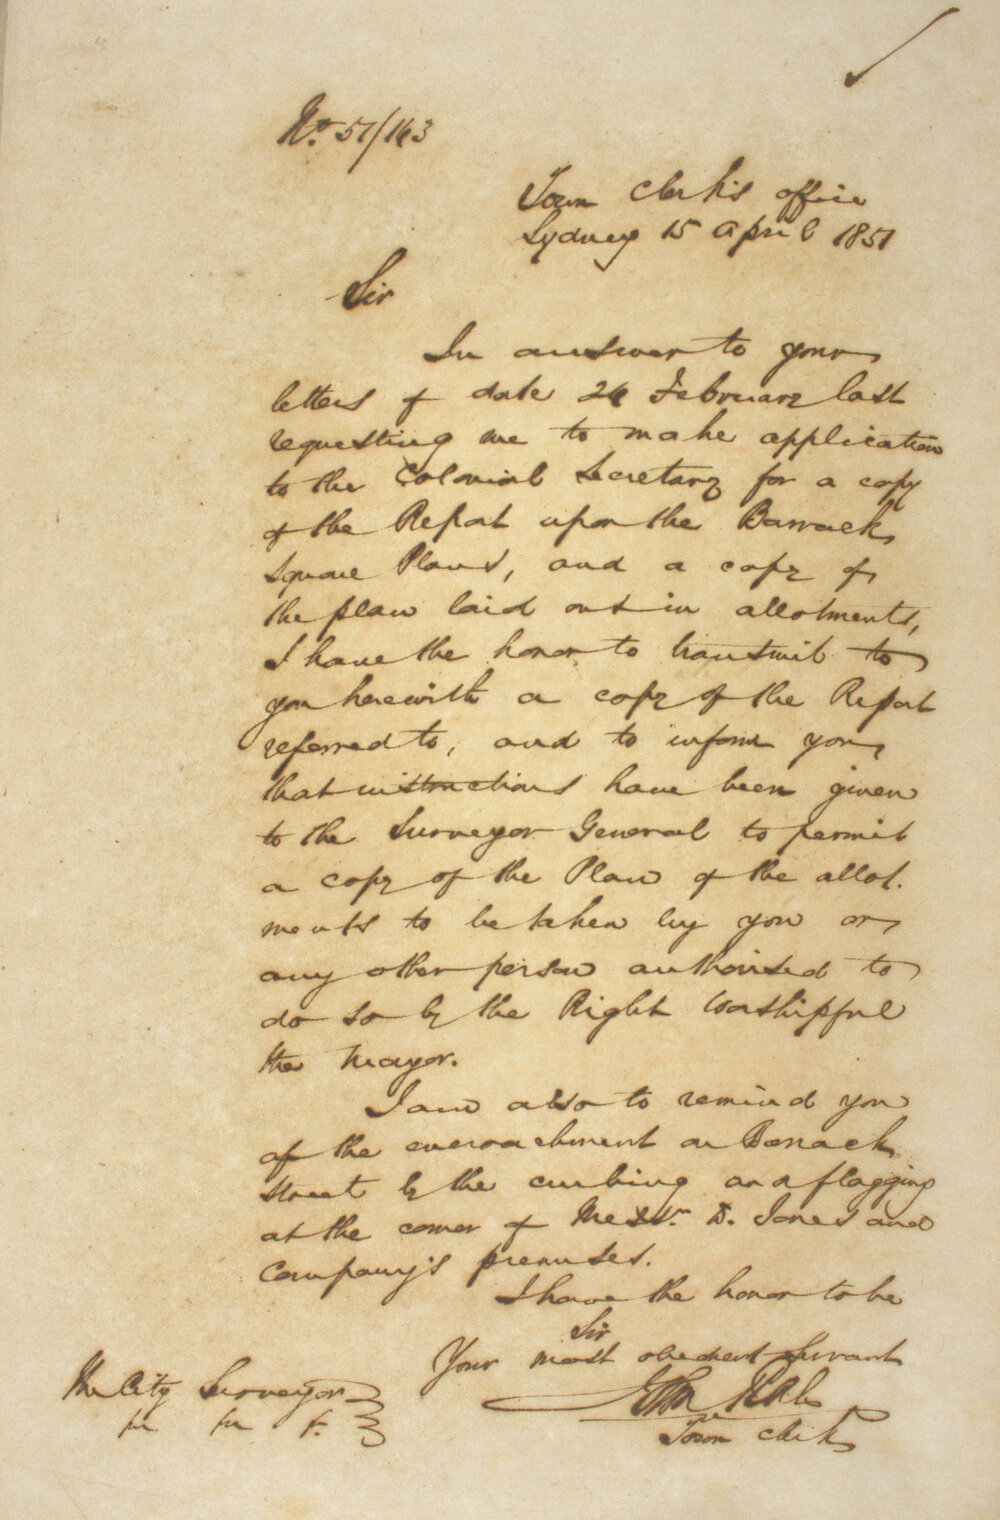 No. 51/143
Town Clerk's office
Sydney 15 April 1851
Sir
In answer to your
letters of date 24 February last
requesting me to make application
to the Colonial Secretary for a copy
of the Report upon the Barrack
Square Plans, and a copy of
the plan laid out in allotments,
I have the honor to transmit to
you herewith a copy of the Report
referred to, and to inform you
that instructions have been given
to the Surveyor General to permit
a copy of the Plan of the allot.
ments to be taken by you or
any other person authorised to
do so by the Right Worshipful
the Mayor.
I am also to remind you
of the encroachment on Barrack
Street by the curbing and flagging
at the corner of Messrs. D. Jones and
Company's premises.
I have the honor to be
Sir
Your most obedient Servant
John
Town Clerk
The City Surveyor